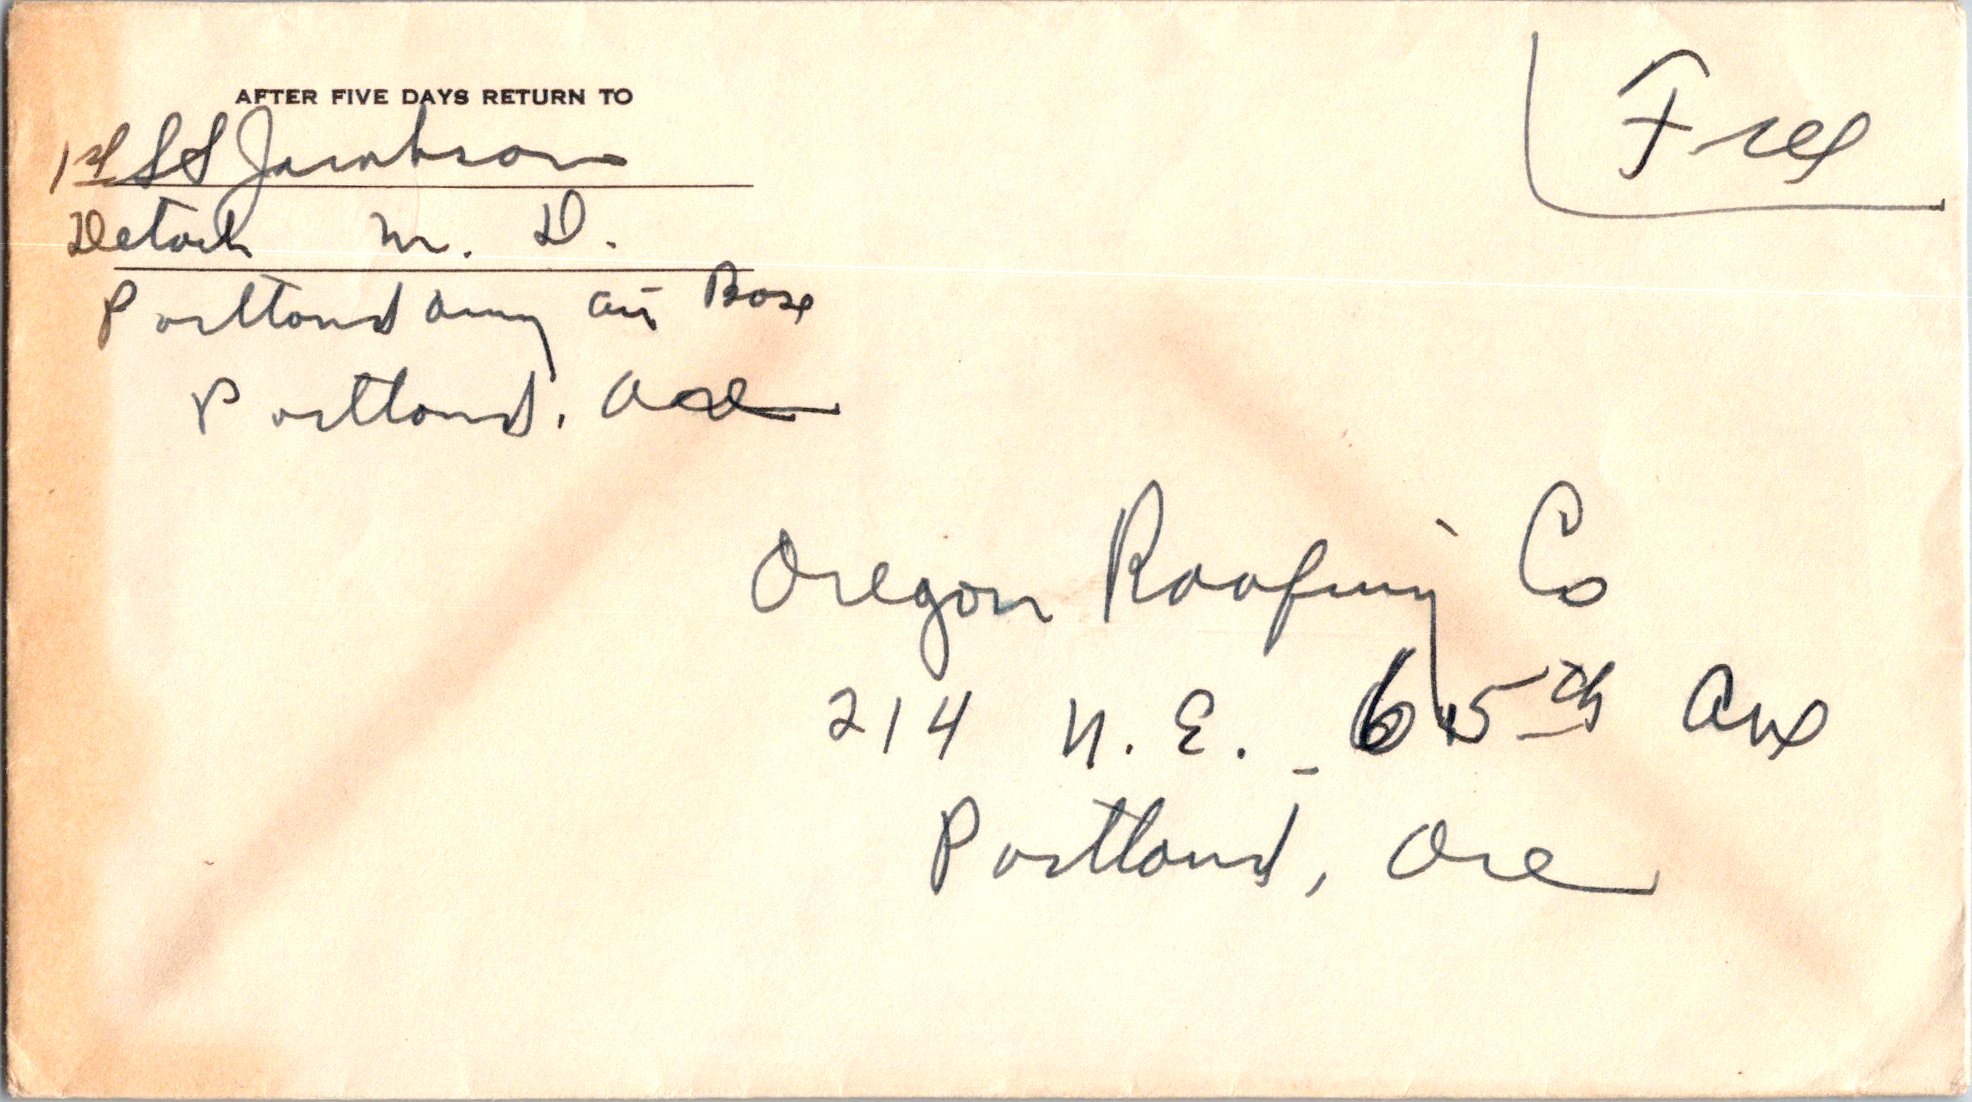 AFTER FIVE DAYS RETURN TO
1st SS Jacobson
Detach M. D.
Portland Army Air Base
Portland, Ore
Free
Oregon Roofing Co
214 N.E. 65th Ave
Portland, Ore